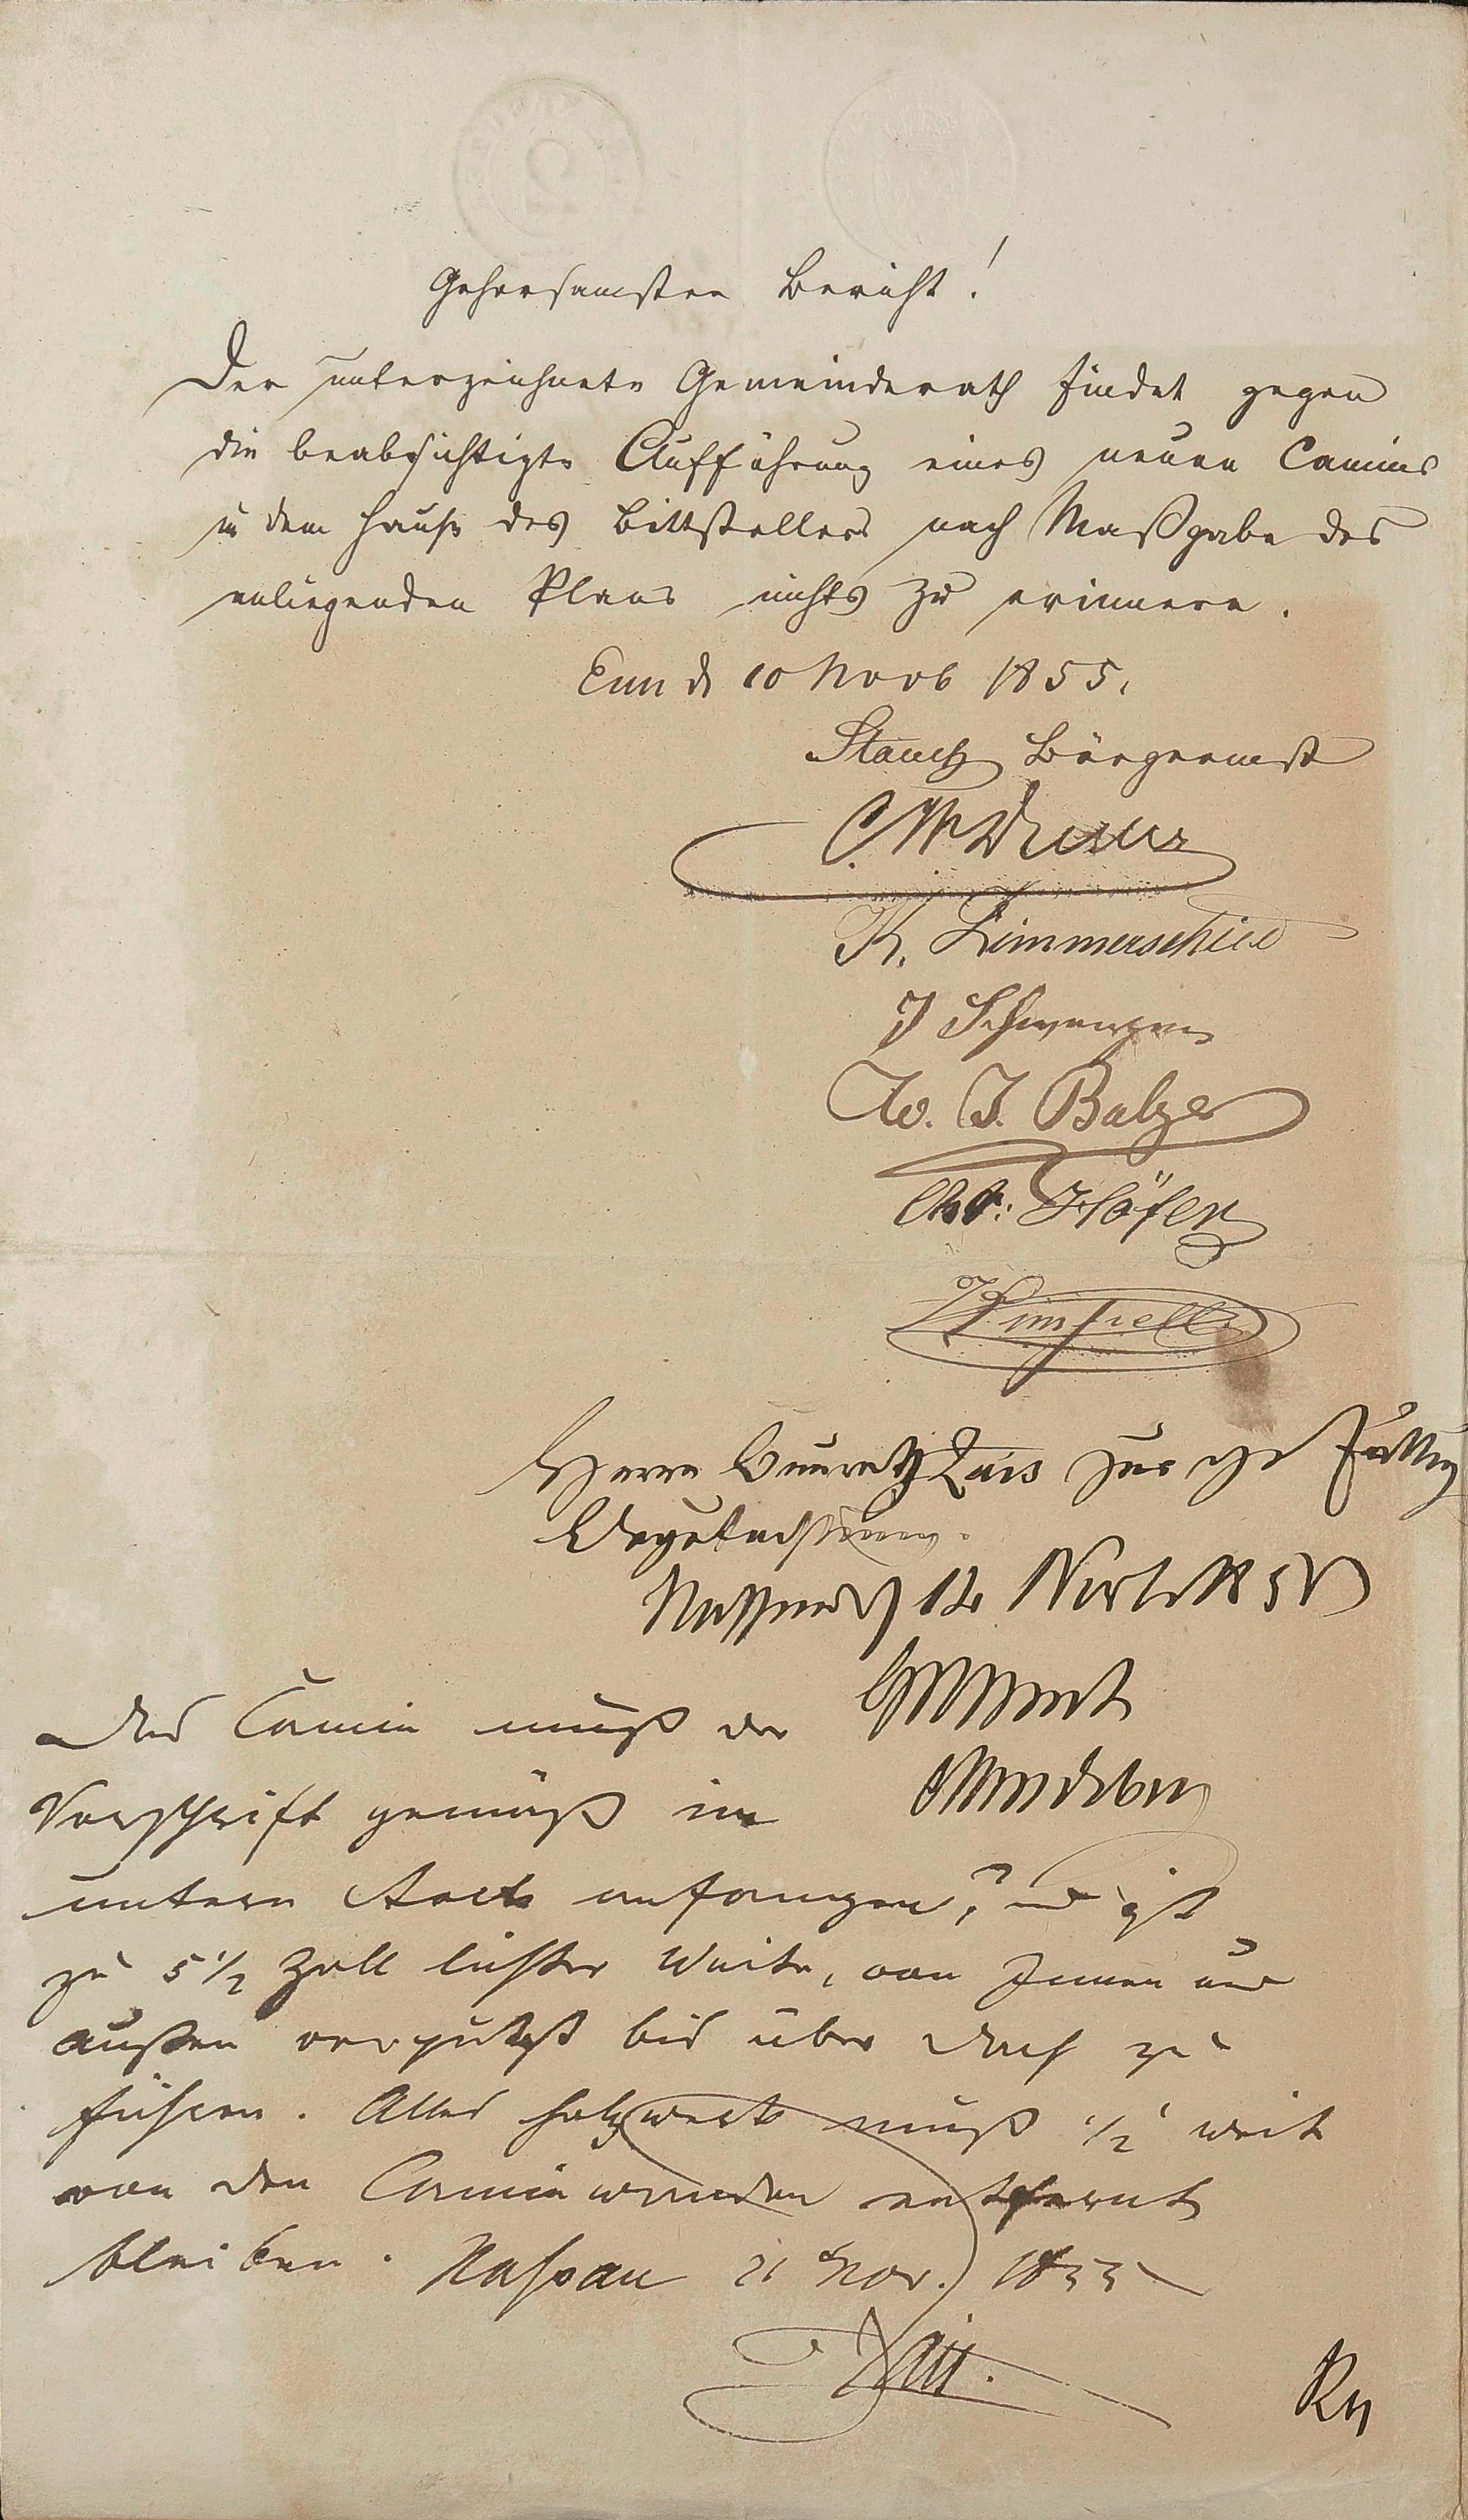 Gehorsamster Bericht!
Der unterzeichnete Gemeinderath findet gegen
die beabsichtigte Aufführung eines neuen Camins
in dem Hause des Bittstellers nach Maßgabe des
anliegenden Plans nichts zu erinnern.
Ems d 10 Novb 1855.
Stauch Bürgermst
K. Zimmerschied
J Schweizer
W. J. Balzer
Chr: Höfer
Herrn Baurath Zais zur
Nassau d 12 Novb 1855
Das Camin muß der
Vorschrift gemäß im
untern Stock anfangen, und ist
zu 5 1/2 Zoll lichter Weite, von Innen und
außen verputzt bis über Dach zu
führen. Alles Holzwerk muß 1/2' weit
von den Caminwänden entfernt
bleiben. Nassau 21 Nov. 1855
Zais.